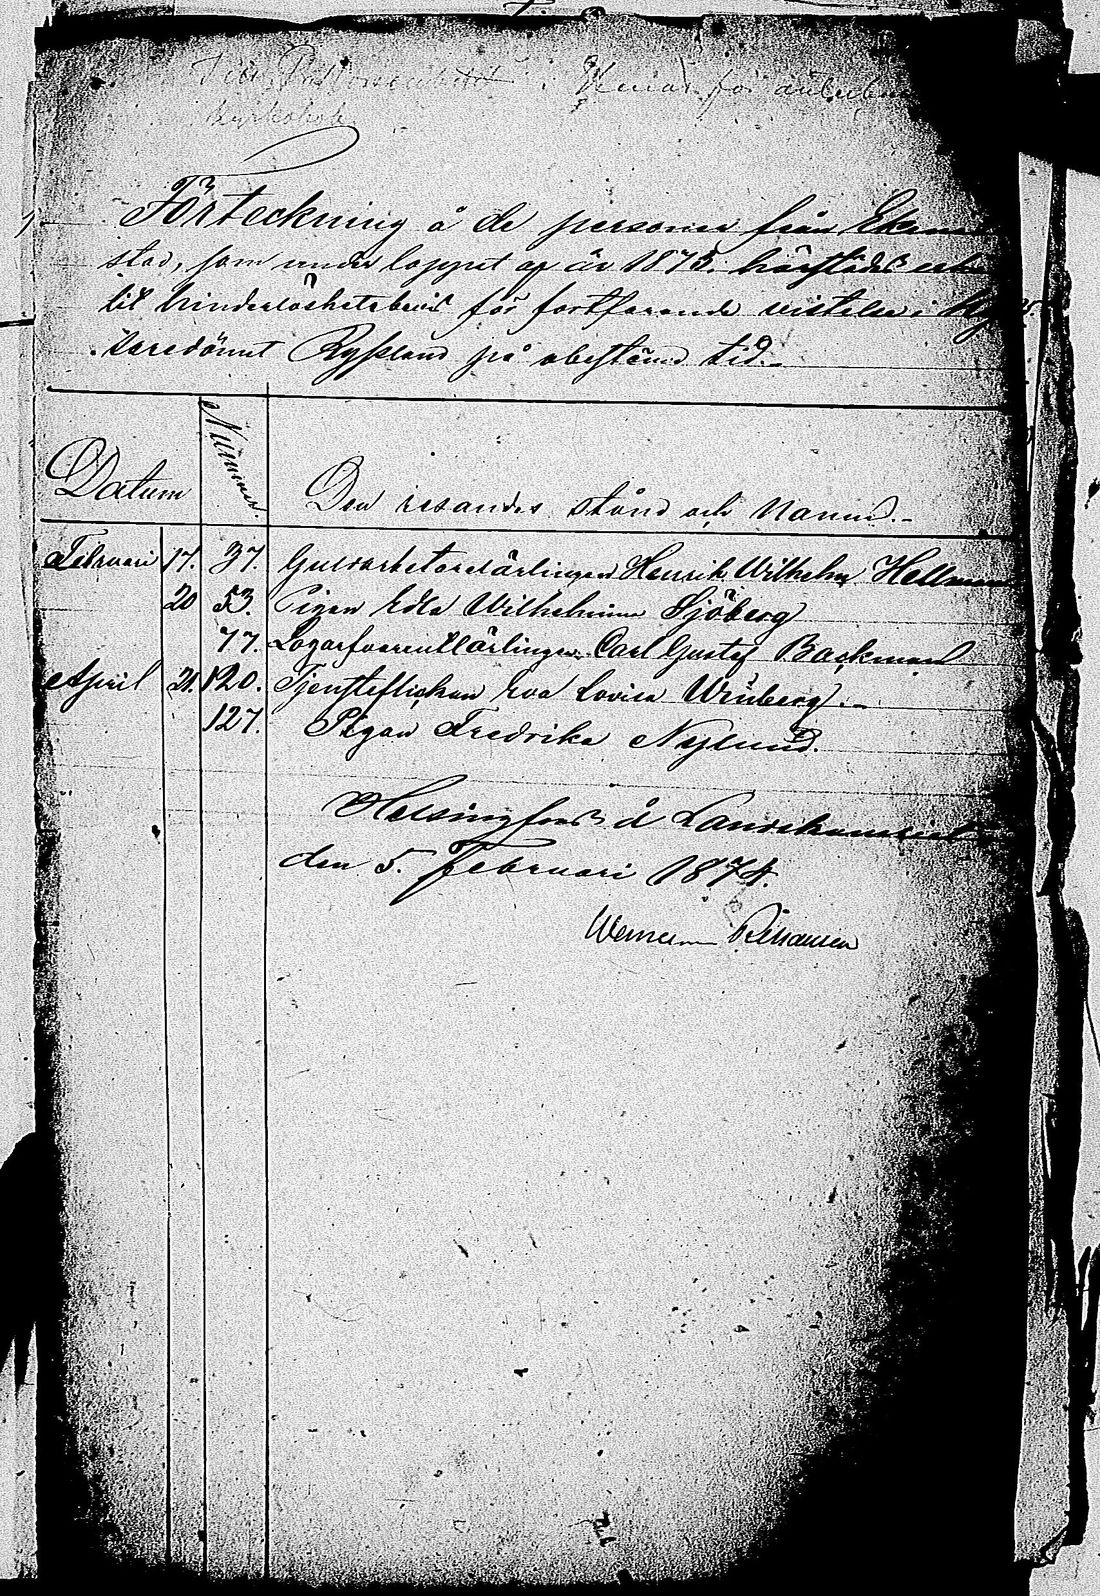 Förteckning å de personer från Ekenäs
stad, som under loppet af år 1873. härstädes
till hinderlöshetsbevis för fortfarande vistelse i
Kejsaredömet Ryssland på obestämd tid.-
Datum Nummer. Den resandes stånd och Namn.-
Februari 17. 37. Guldarbetarelärlingen Henrik Wilhelm Hellman
20 53. Pigan Edla Wilhelmina Sjöberg
77. Logarfvarelärlingen Carl Gustaf Backman
April 21. 120. Tjensteflickan Eva Lovisa Winberg.-
127. Pigan Fredrika Nylund.
Helsingfors å Landskansliet
den 5. Februari 1874.